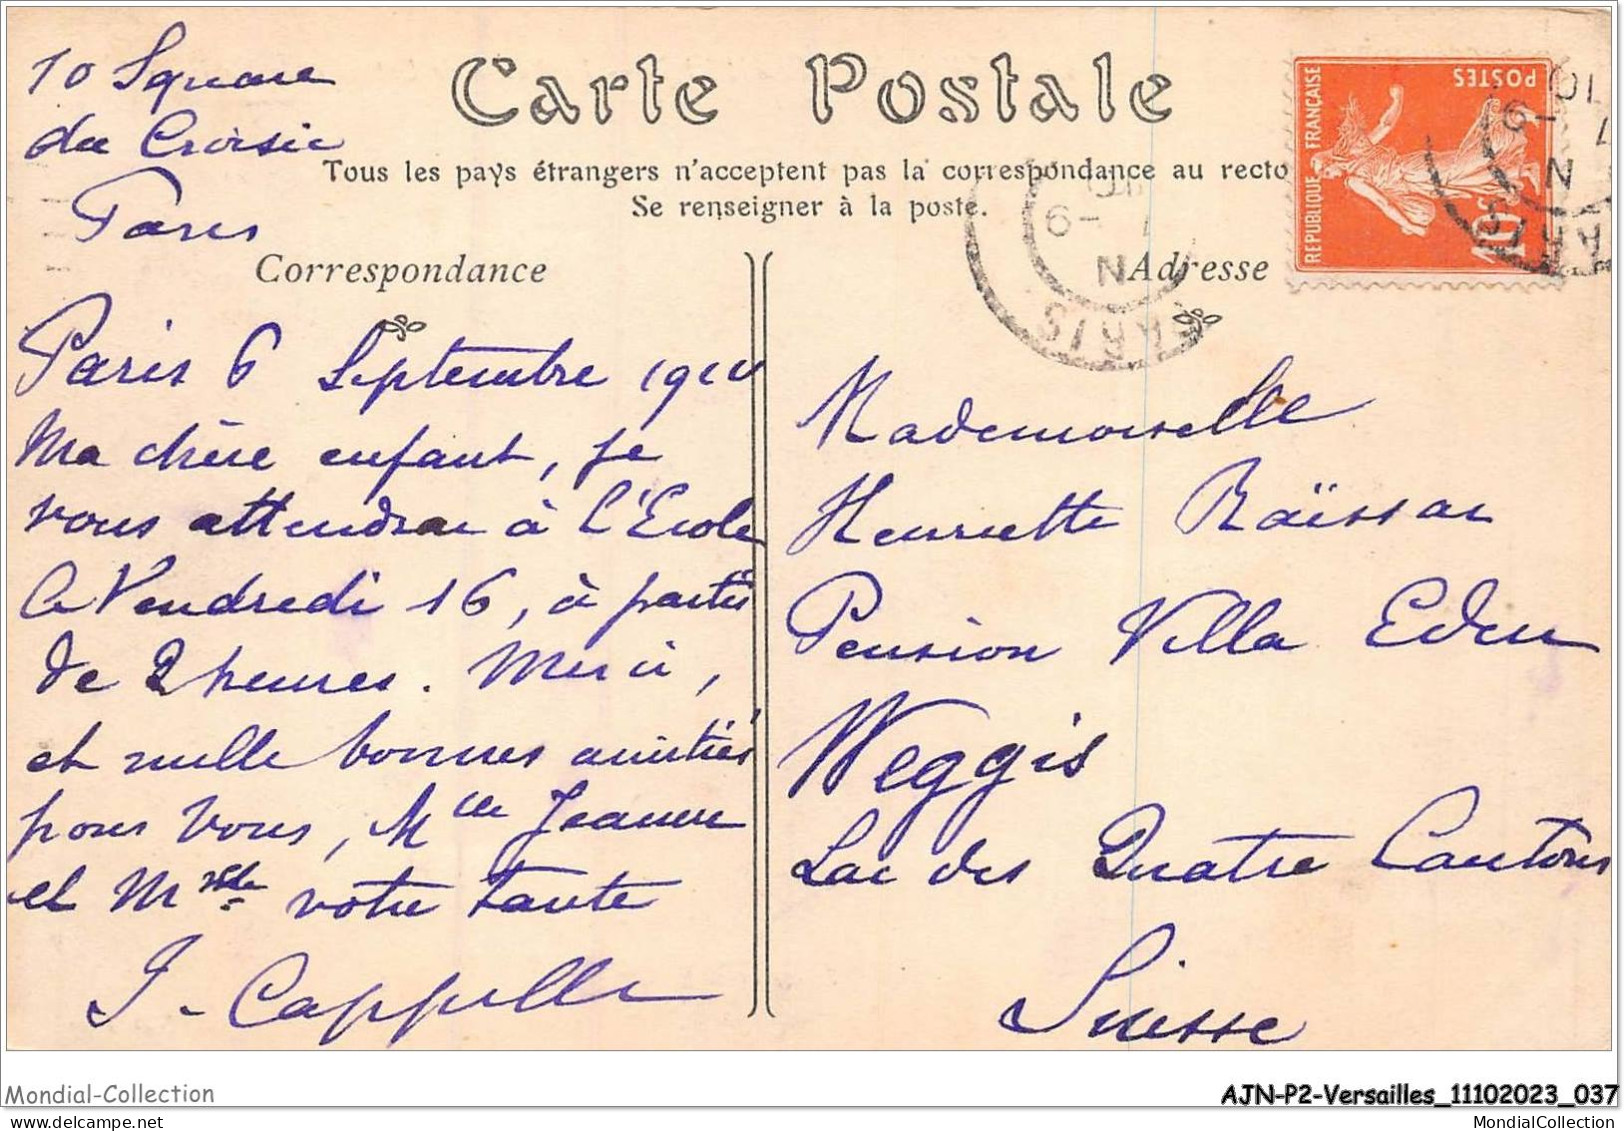 10 Square
du Croisic
Paris
Carte Postale
Tous les pays étrangers n'acceptent pas la correspondance au recto
Se renseigner à la poste.
Correspondance
Paris 6 Septembre 1910
Ma chère enfant, je
vous attendrai à l'Ecole
le Vendredi 16, à partir
de 2 heures. Merci,
et mille bonnes amitiés
pour vous, Mlle Jeanne
et Mme votre tante
J. Cappelle
Adresse
Mademoiselle
Henriette Raïssac
Pension Villa Eden
Weggis
Lac des Quatre Cantons
Suisse
REPUBLIQUE FRANÇAISE
POSTES
10c
PARIS
6-9
PARIS
6-
Mondial-Collection
AJN-P2-Versailles_11102023_037
www.mondialcollection.net
MondialCollection